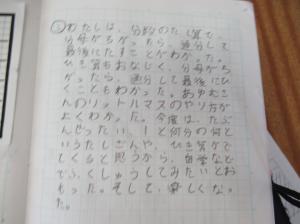 ③わたしは、分数のたし算で、
分母がちがったら、通分して
最後にたすことがわかった。
ひき算もおなじく、分母がち
がったら、通分して最後にひ
くこともわかった。あゆむさ
んのリットルマスのやり方が
よくわかった。今度は、たぶ
んぜったい、1と何分の何と
いうたしざんや、ひき算がで
てくると思うから、自学などで
ふくしゅうしてみたいとお
もった。そして、楽しくな
た。